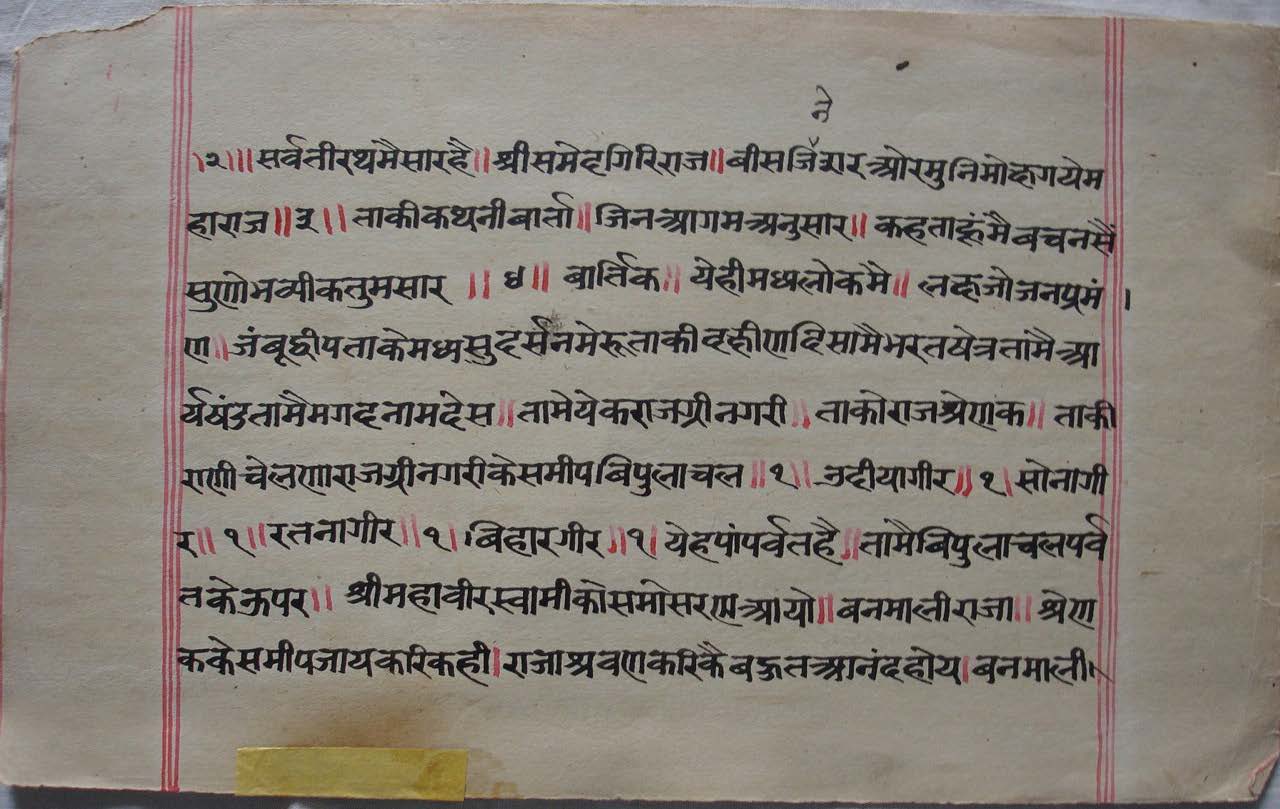 ने
।२।। सर्वतीरथमैसारहै।। श्रीसमेदगिरिराज।। बीसजिंसरऔरमुनिमोक्षगयेम
हाराज।। ३ ।। ताकीकथनीबार्ता।। जिनआगमअनुसार।। कहताहूंमैबचनसैं
सुणोभव्यीकतुमसार ।। ४ ।। बार्त्तिक।। येहीमध्यलोकमै।। लक्षजोजनप्रमं।
ण।। जंबूद्वीपताकेमध्यसुदर्सनमेरूताकीदक्षीणदिसामैभरतषेत्रतांमैआ
र्यषंडतामैमगददनामदेस।। तामेयेकराजग्रीनगरी।। ताकोराजश्रेणक।। ताकी
राणीचेलणाराजग्रीनगरीकेसमीपबिपुलाचल।। १।। उदीयागीर।। १। सोनागी
र।। १।। रतनागीर।। १। बिहारगीर।। १। येहपांपर्वतहै।। तांमैबिपुलाचलपर्व
तकेऊपर।। श्रीमहावीरस्वामीकोसमोसरणआयो।। बनमालीराजा।। श्रेण
ककेसमीपजायकरिकही। राजाश्रवणकरिकैबहुतआनंदहोय। बनमाली।